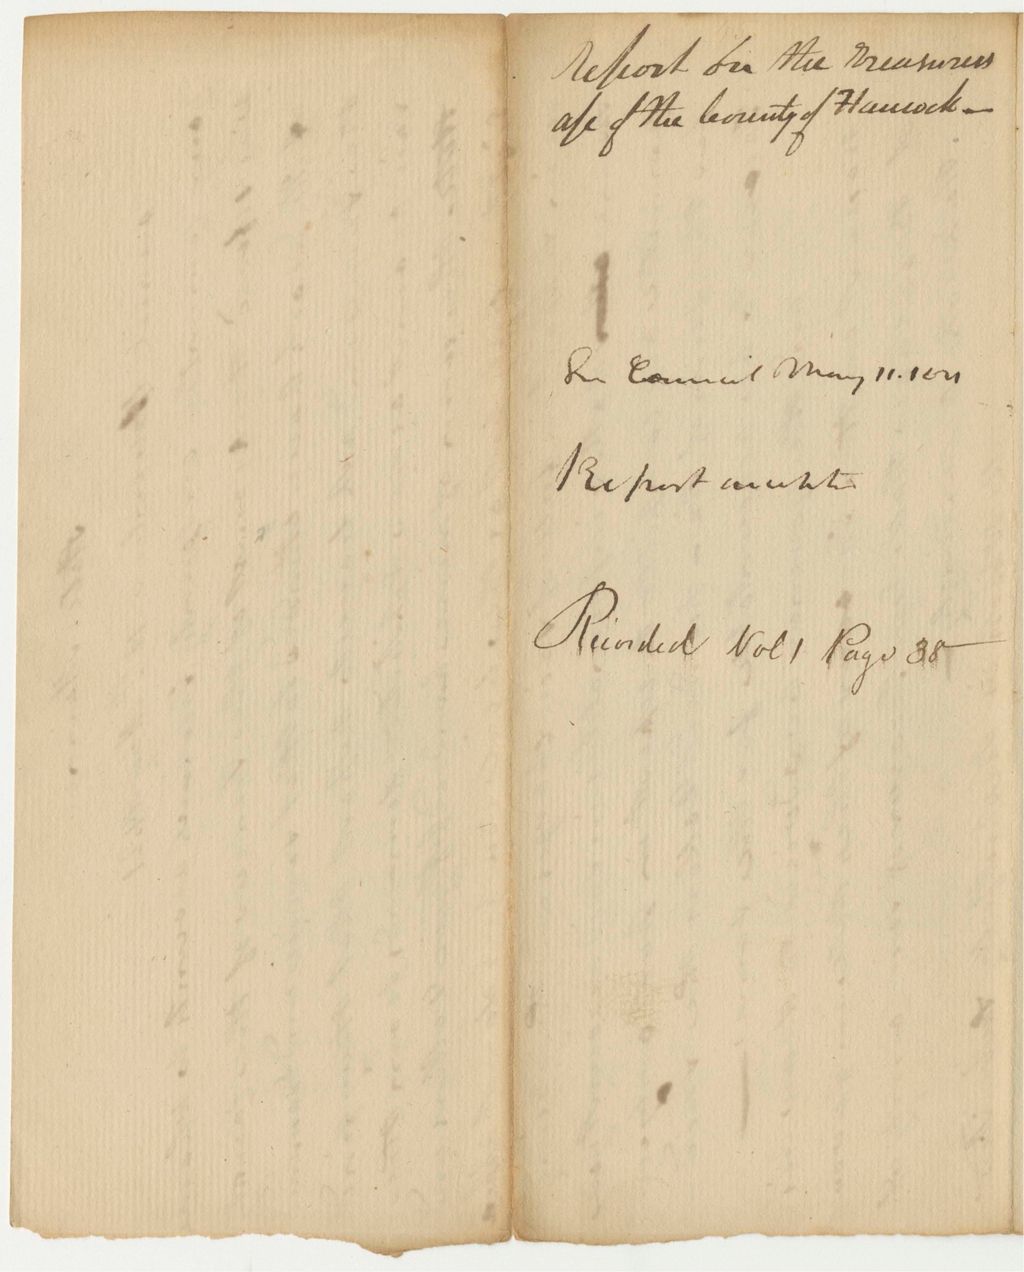 Report on the Treasurers
a/c of the County of Hancock —
In Council May 11. 1821
Report
Recorded Vol 1 Page 38